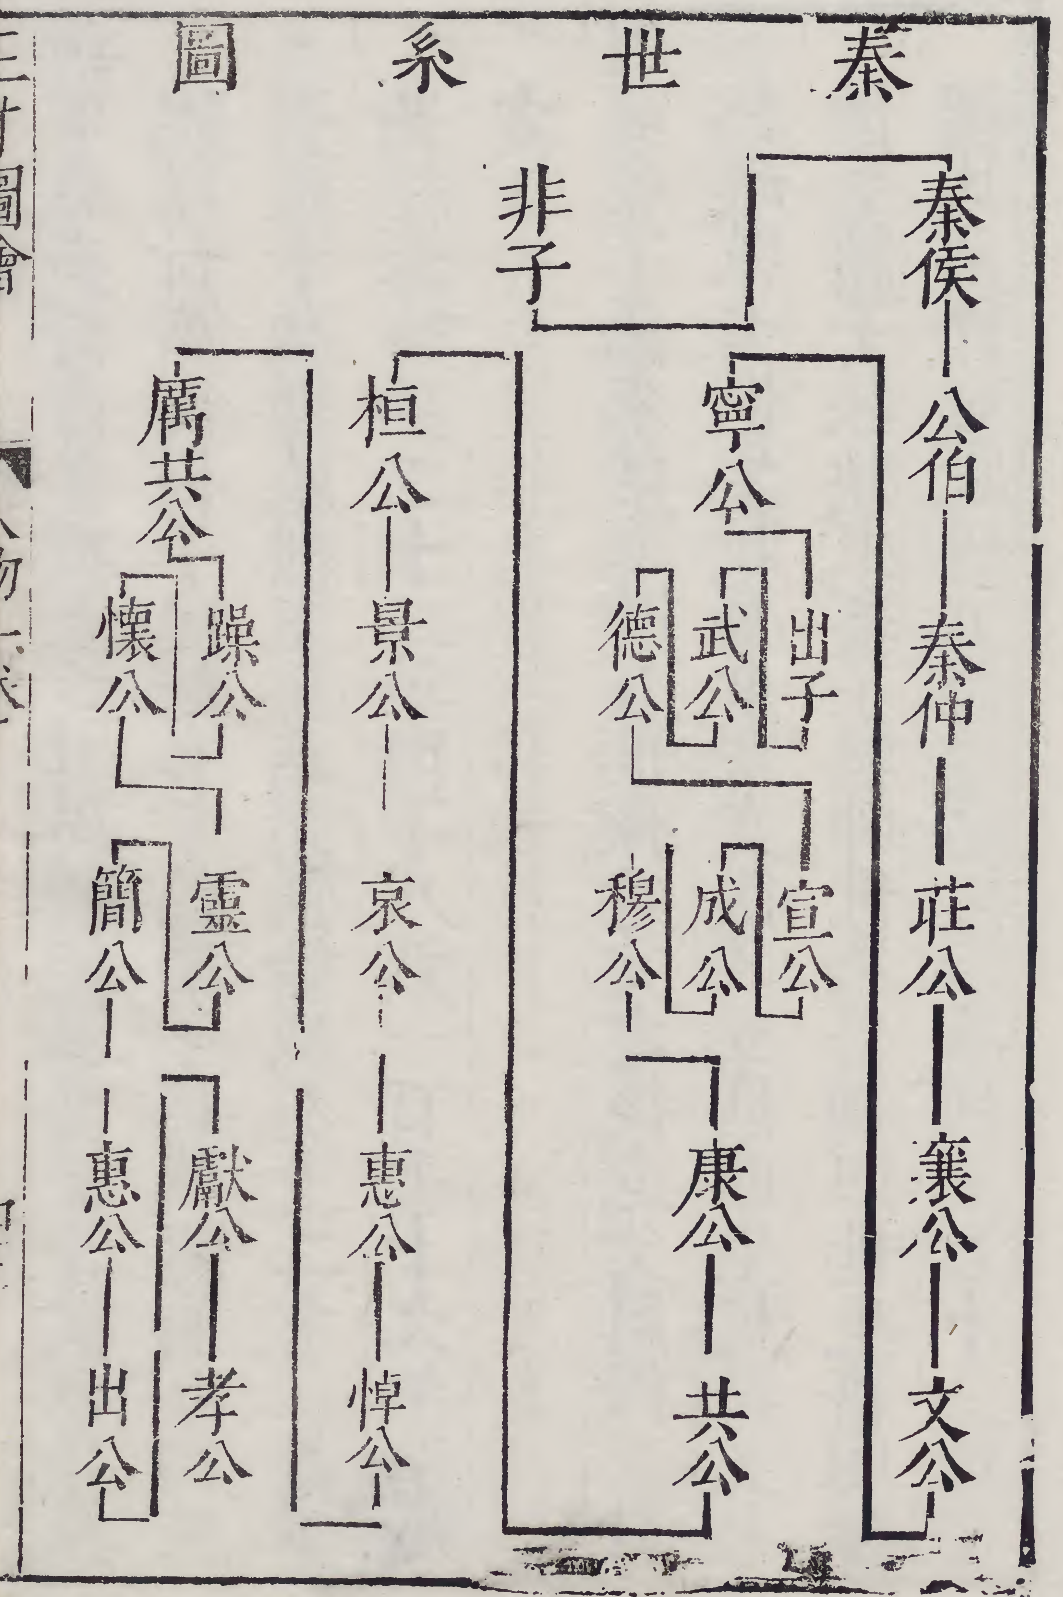 秦世系圖
非子
秦侯
公伯
秦仲
莊公
襄公
文公
寧公
出子
武公
德公
宣公
成公
穆公
康公
共公
桓公
景公
哀公
惠公
悼公
厲共公
躁公
懷公
靈公
簡公
惠公
出公
獻公
孝公
三才圖會